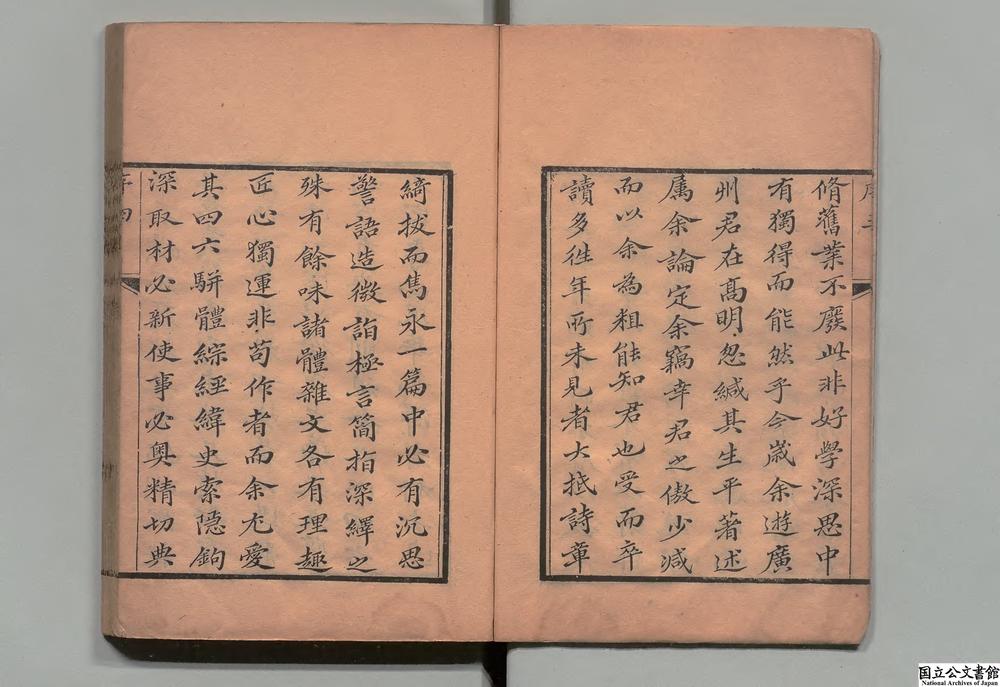 脩舊業不廢此非好學深思中
有獨得而能然乎今歲余遊廣
州君在高明忽緘其生平著述
属余論定余竊幸君之傲少減
而以余為粗能知君也受而卒
讀多徃年所未見者大抵詩章
綺拔而雋永一篇中必有沉思
警語造微詣極言簡指深繹之
殊有餘味諸體雜文各有理趣
匠心獨運非苟作者而余尤愛
其四六駢體綜經緯史索隠鉤
深取材必新使事必奥精切典
序四
国立公文書館
National Archives of Japan